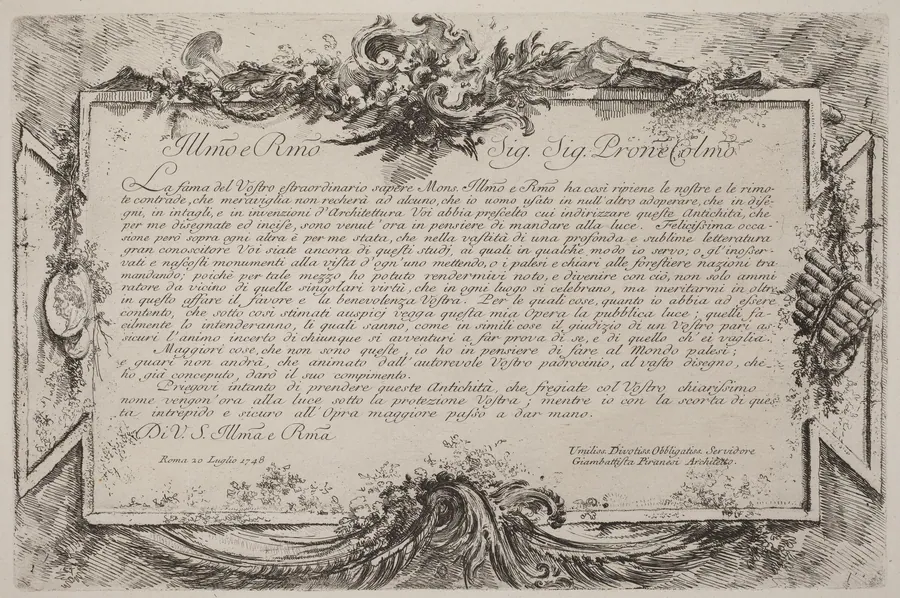 Illmo e Rmo Sig. Sig. Prone Colmo
La fama del Vostro estraordinario sapere Mons. Illmo e Rmo ha così ripiene le nostre e le rimo-
te contrade, che meraviglia non recherà ad alcuno, che io uomo usato in null'altro adoperare, che in dise-
gni, in intagli, e in invenzioni d'Architettura Voi abbia prescelto cui indirizzare queste Antichità, che
per me disegnate ed incise, sono venut'ora in pensiere di mandare alla luce. Felicissima occa-
sione però sopra ogni altra è per me stata, che nella vastità di una profonda e sublime letteratura
gran conoscitore Voi siate ancora di questi studj, ai quali in qualche modo io servo; o gl'inosser-
vati e nascosti monumenti alla vista d'ogn'uno mettendo, o i palesi e chiari alle forestiere nazioni tra-
mandando; poichè per tale mezzo ho potuto rendermivi noto, e divenire con ciò, non solo ammi
ratore da vicino di quelle singolari virtù, che in ogni luogo si celebrano, ma meritarmi in oltre
in questo affare il favore e la benevolenza Vostra. Per le quali cose, quanto io abbia ad essere
contento, che sotto così stimati auspicj vegga questa mia Opera la pubblica luce; quelli fa-
cilmente lo intenderanno, li quali sanno, come in simili cose il giudizio di un Vostro pari as-
sicuri l'animo incerto di chiunque si avventuri a far prova di se, e di quello ch'ei vaglia.
Maggiori cose, che non sono queste, io ho in pensiere di fare al Mondo palesi;
e guari non andrà, che animato dall'autorevole Vostro padrocinio, al vasto disegno, che
ho già conceputo, darò il suo compimento.
Priegovi intanto di prendere queste Antichità, che fregiate col Vostro chiarissimo
nome vengon'ora alla luce sotto la protezione Vostra; mentre io con la scorta di ques
ta intrepido e sicuro all'Opra maggiore passo a dar mano.
Di V. S. Illma e Rma
Roma 20 Luglio 1748
Umiliss. Divotiss. Obbligatiss. Servidore
Giambattista Piranesi Architetto.